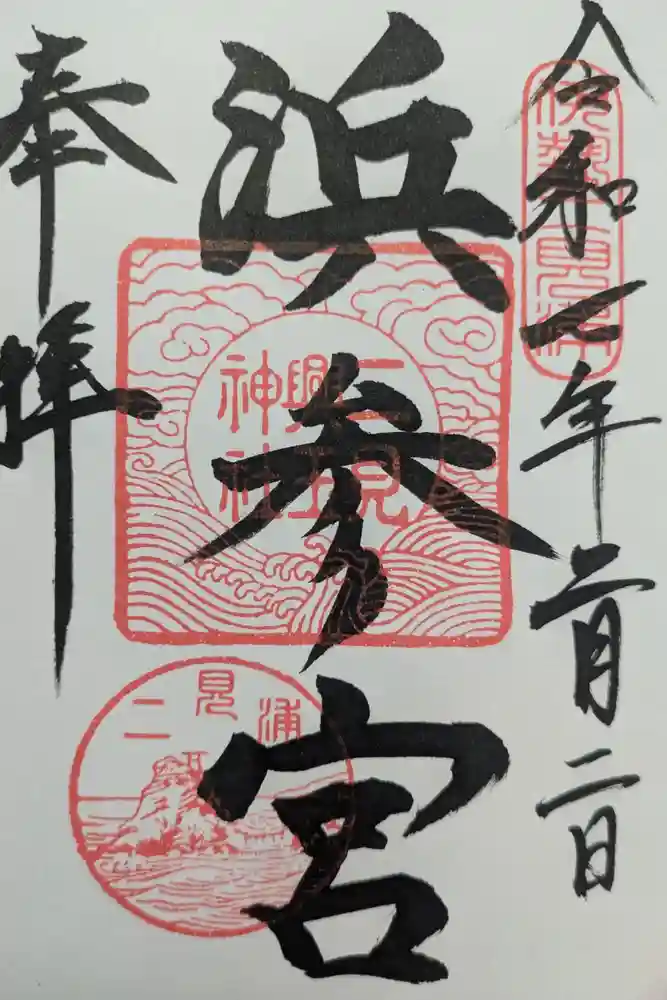 伊勢二見浦
令和七年二月二日
浜参宮
二見
興玉
神社
奉拝
二見浦